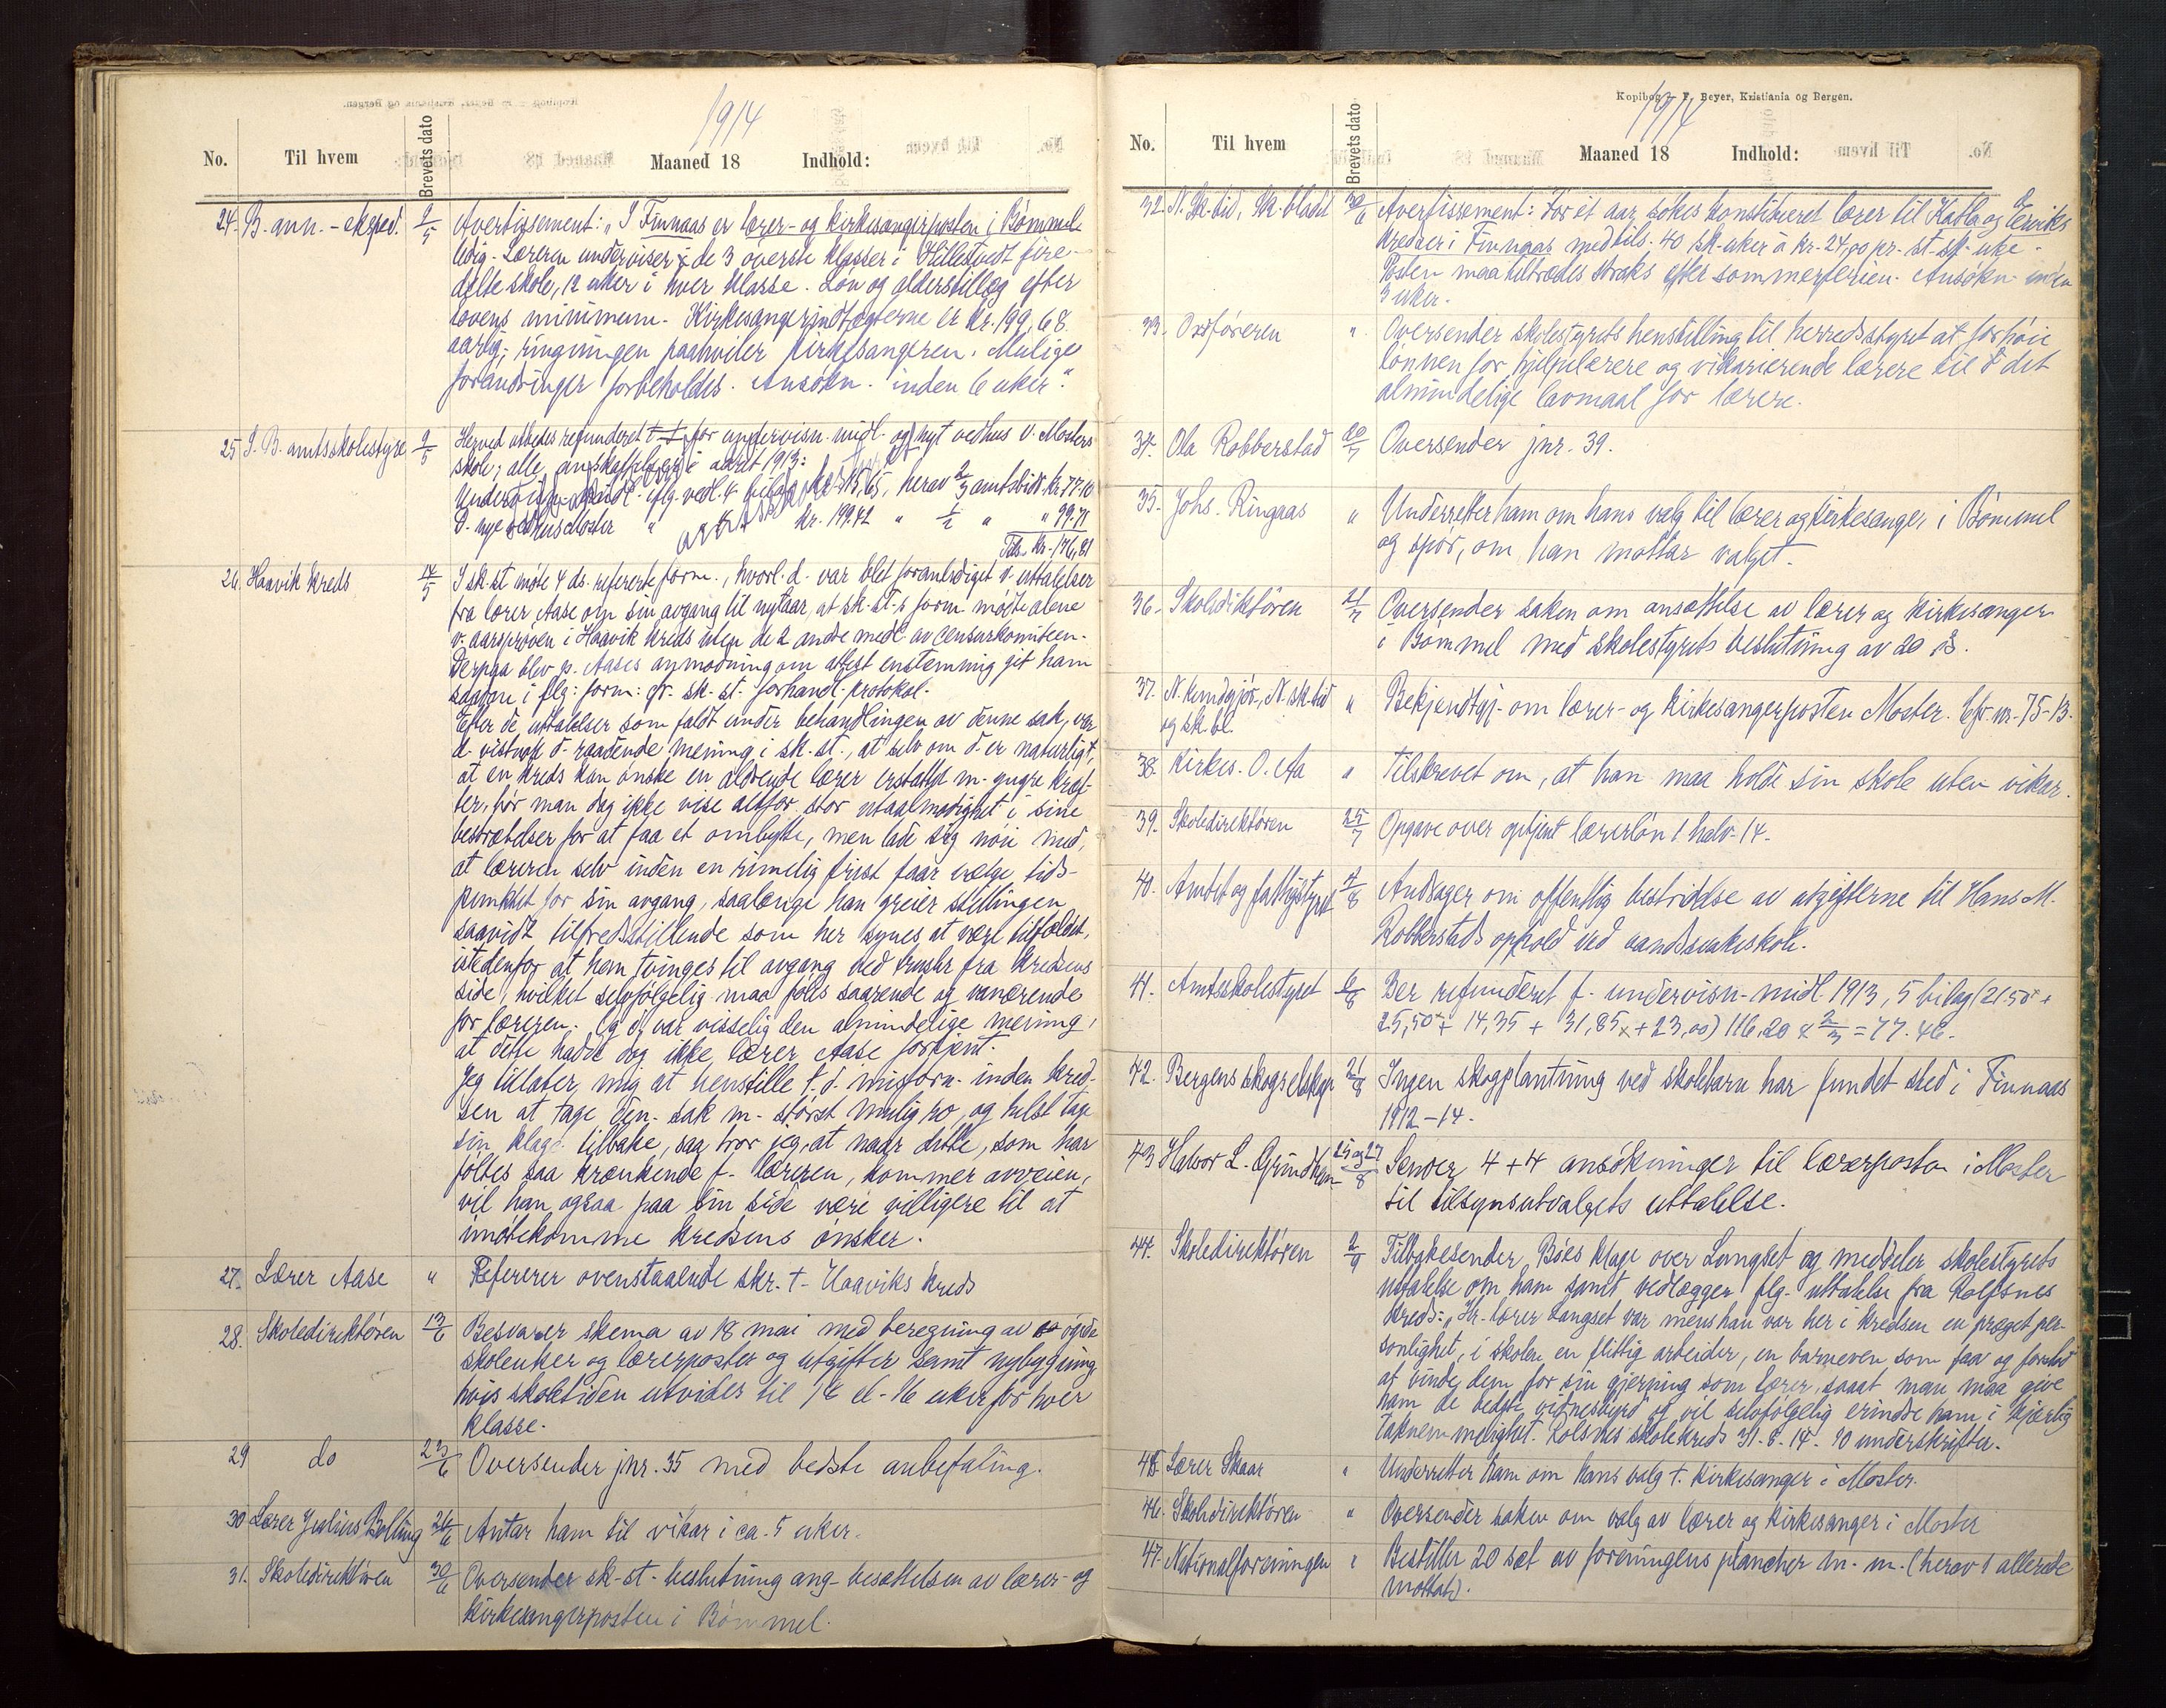 1914
No. Til hvem Brevets dato Maaned 18 Indhold:
24. B. ann.-eksped. 9/5 Avertissement: „I Finnaas er lærer- og kirkesangerposten i Bømmel
ledig. Læreren underviser i de 3 øverste klasser i Hillestvedt fire-
delte skole, 12 uker i hver klasse. Løn og alderstillæg efter
lovens minimum. Kirkesangerindtægterne er kr. 199,68
aarlig; ringningen paahviler kirkesangeren. Mulige
forandringer forbeholdes. Ansøkn. inden 6 uker."
25. S. B. amtsskolestyre 9/5 Herved utbedes refunderet for undervisn. midl. og nyt vedhus v. Mosters
skole, alle anskaffelser i aaret 1913:
Undervisn. midl. iflg. vedl. 4 bilag kr. 115,65, herav 2/3 amtsbidr. kr. 77.10
D. nye vedhus Moster " kr. 199.42 " 1/2 " " 99.71
Tils. kr. 176,81
26. Haavik kreds 14/5 I sk.st. møte 4 ds. refererte form., hvorl. d. var blet foranlediget v. uttalelser
fra lærer Aase om sin avgang til nytaar, at sk.-st.s form. møtte alene
v. aarsprøven i Haavik kreds uten de 2 andre medl. av censurkomiteen.
Derpaa blev p. Aases anmodning om attest enstemmig git ham
saadan i flg: form: cfr. sk.-st. forhandl. protokol.
Efter de uttalelser som faldt under behandlingen av denne sak, var
d. vistnok d. raadende mening i sk. st., at selv om d. er naturligt,
at en kreds kan ønske en aldrende lærer erstattet m. yngre kræf-
ter, bør man dog ikke vise altfor stor utaalmodighet i sine
bestræbelser for at faa et ombytte, men lade sig nøie med,
at læreren selv inden en rimelig frist faar vælge tids-
punktet for sin avgang, saalænge han greier stillingen
saavidt tilfredsstillende som her synes at være tilfældet,
istedenfor at han tvinges til avgang ved trusler fra kredsens
side, hvilket selvfølgelig maa føles saarende og vanærende
for læreren. Og d. var visselig den almindelige mening,
at dette hadde dog ikke lærer Aase fortjent.
Jeg tillater mig at henstille t. d. misforn. inden kred-
sen at tage den. sak m. størst mulig ro, og helst tage
sin klage tilbake, saa tror jeg, at naar dette, som har
føltes saa krænkende f. læreren, kommer avveien,
vil han ogsaa paa sin side være villigere til at
imøtekomme kredsens ønsker.
27. Lærer Aase " Refererer ovenstaaende skr. t. Haaviks kreds
28. Skoledirektøren 13/6 Besvarer skema av 18 mai med beregning av økede
skoleuker og lærerposter og utgifter samt nybygning
hvis skoletiden utvides til 14 el. 16 uker for hver
klasse.
29 do 23/6 Oversender jnr. 35 med bedste anbefaling.
30 Lærer Julius Bolling 26/6 Antar ham til vikar i ca. 5 uker.
31. Skoledirektøren 30/6 Oversender sk.-st. beslutning ang. besættelsen av lærer- og
kirkesangerposten i Bømmel.
Kopibog — F. Beyer, Kristiania og Bergen.
1914
No. Til hvem Brevets dato Maaned 18 Indhold:
32. N. Sk.tid., Sk.bladet 30/6 Avertissement: For et aar søkes konstitueret lærer til Katla og Eerviks
kredser i Finnaas med tils. 40 sk.uker à kr. 24,00 pr. st. sk. uke.
Posten maa tiltrædes straks efter sommerferien. Ansøkn. inden
3 uker.
33. Ordføreren " Oversender skolestyrets henstilling til herredsstyret at forhøie
lønnen for hjelpelærere og vikarierende lærere til d det
almindelige lavmaal for lærere.
34. Ola Robberstad 20/7 Oversender jnr. 39.
35. Johs. Ringaas " Underretter ham om hans valg til lærer og kirkesanger i Bømmel
og spør, om han mottar valget.
36. Skoledirektøren 21/7 Oversender saken om ansættelse av lærer og kirkesanger
i Bømmel med skolestyrets beslutning av 20 ds.
37. N. kundgjør., N. sk.tid " Bekjendtgj. om lærer- og kirkesangerposten Moster. Cfr. nr. 75-13.
og sk.bl.
38. Kirkes. O. Aa " Tilskrevet om, at han maa holde sin skole uten vikar.
39. Skoledirektøren 25/7 Opgave over optjent lærerløn 1 halv-14.
40. Amtet og fattigstyret 4/8 Andrager om offentlig bestridelse av utgifterne til Hans M.
Robberstads ophold ved aandssvakeskole.
41. Amtsskolestyret 6/8 Ber refunderet f. undervisn. midl. 1913, 5 bilag (21.50 +
25,50 + 14,35 + 31,85 + 23,00) 116,20 x 2/3 = 77.46.
42. Bergens skogselskap 21/8 Ingen skogplantning ved skolebarn har fundet sted i Finnaas
1912-14.
43 Halvor L. Grindheim 25 og 27/8 Sender 4 + 4 ansøkninger til lærerposten i Moster
til tilsynsutvalgets uttalelse.
44. Skoledirektøren 2/9 Tilbakesender Bøes klage over Langset og meddeler skolestyrets
uttalelse om ham samt vedlægger flg. uttalelse fra Rolfsnes
kreds: „Hr. lærer Langset var mens han var her i kredsen en præget per-
sonlighet, i skolen en flittig arbeider, en barneven som faa og forstod
at vinde dem for sin gjerning som lærer, saaat man maa give
ham de bedste vidnesbyrd og vil selvfølgelig erindre ham i kjærlig
taknemmelighet. Rolfsnes skolekreds 31-8-14. 10 underskrifter.
45. Lærer Skaar " Underretter ham om hans valg t. kirkesanger i Moster.
46. Skoledirektøren " Oversender saken om valg av lærer og kirkesanger i Moster
47. Nationalforeningen " Bestiller 20 sæt av foreningens plancher m. m. (herav 1 allerede
mottat).